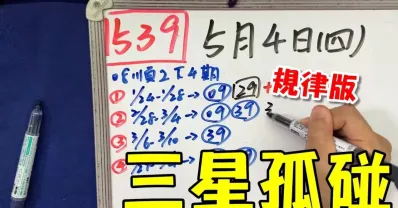 539 5月4日(四)
順2下4期
① 1/24-1/28→09 29+
規律版
② 2/28-3/4→09 39
③ 3/6-3/10→39
④
三星孤碰